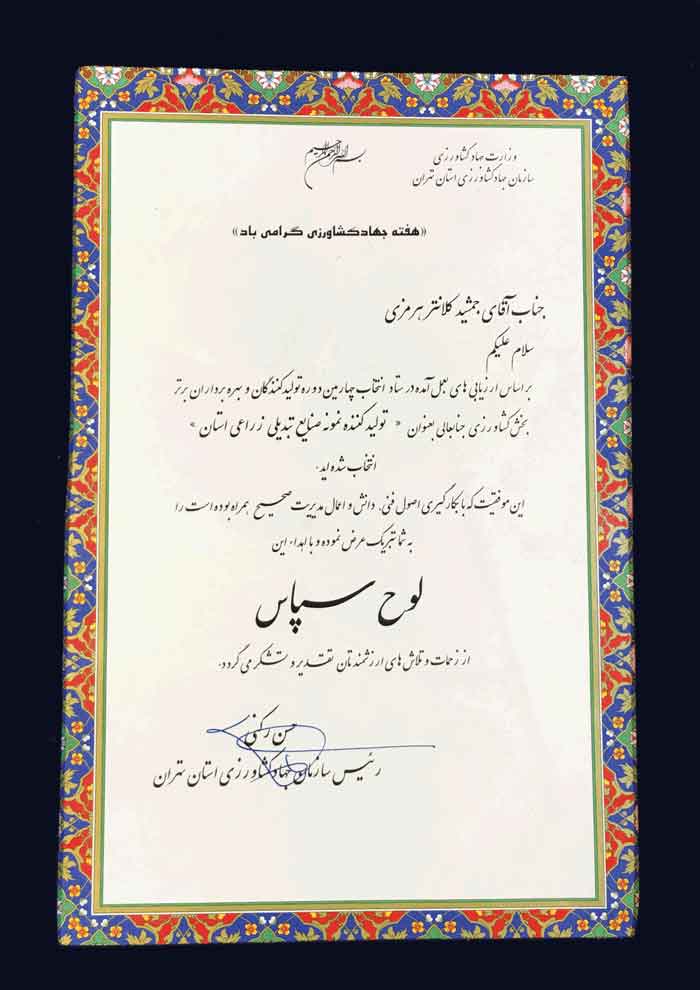 بسم الله الرحمن الرحیم
وزارت جهاد کشاورزی
سازمان جهاد کشاورزی استان تهران
«هفته جهاد کشاورزی گرامی باد»
جناب آقای جمشید کلانتر هرمزی
سلام علیکم
بر اساس ارزیابی های بعمل آمده در ستاد انتخاب چهارمین دوره تولیدکنندگان و بهره برداران برتر
بخش کشاورزی جنابعالی بعنوان « تولید کننده نمونه صنایع تبدیلی زراعی استان »
انتخاب شده اید.
این موفقیت که با بکارگیری اصول فنی، دانش و اعمال مدیریت صحیح همراه بوده است را
به شما تبریک عرض نموده و با اهداء این
لوح سپاس
از زحمات و تلاش های ارزشمندتان تقدیر و تشکر می گردد.
حسن رکنی
رئیس سازمان جهاد کشاورزی استان تهران